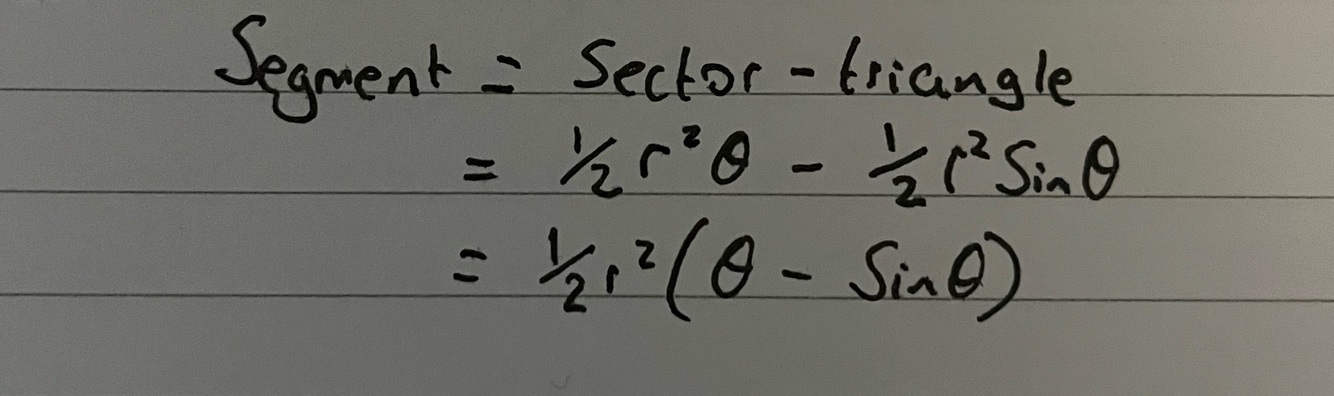 Segment = Sector - triangle
= 1/2 r²θ - 1/2 r² Sin θ
= 1/2 r² (θ - Sin θ)